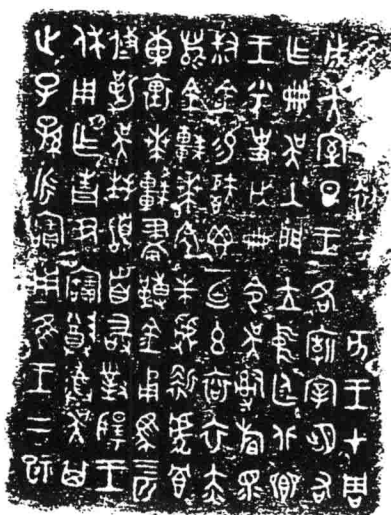 王才周
成大室旦王各廟宰朏右
乍冊吳入門立中廷北鄉
王乎史戊冊令吳𤔲眔
叔金易秬鬯一卣玄袞衣赤
舄金車朱虢靳虎冟
熏裏較畫金甬馬四匹
攸勒吳拜稽首敢對揚王
休用乍青尹寶尊彝吳其
世子孫永寶用隹王二祀